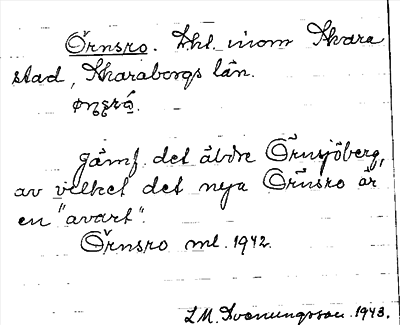 Örnsro. Lht. inom Skara
stad, Skaraborgs län.
Jämf. det äldre Örnsjöberg,
av vilket det nya Örnsro är
en "avart".
Örnsro ml. 1942.
L M. Svenungsson. 1943.